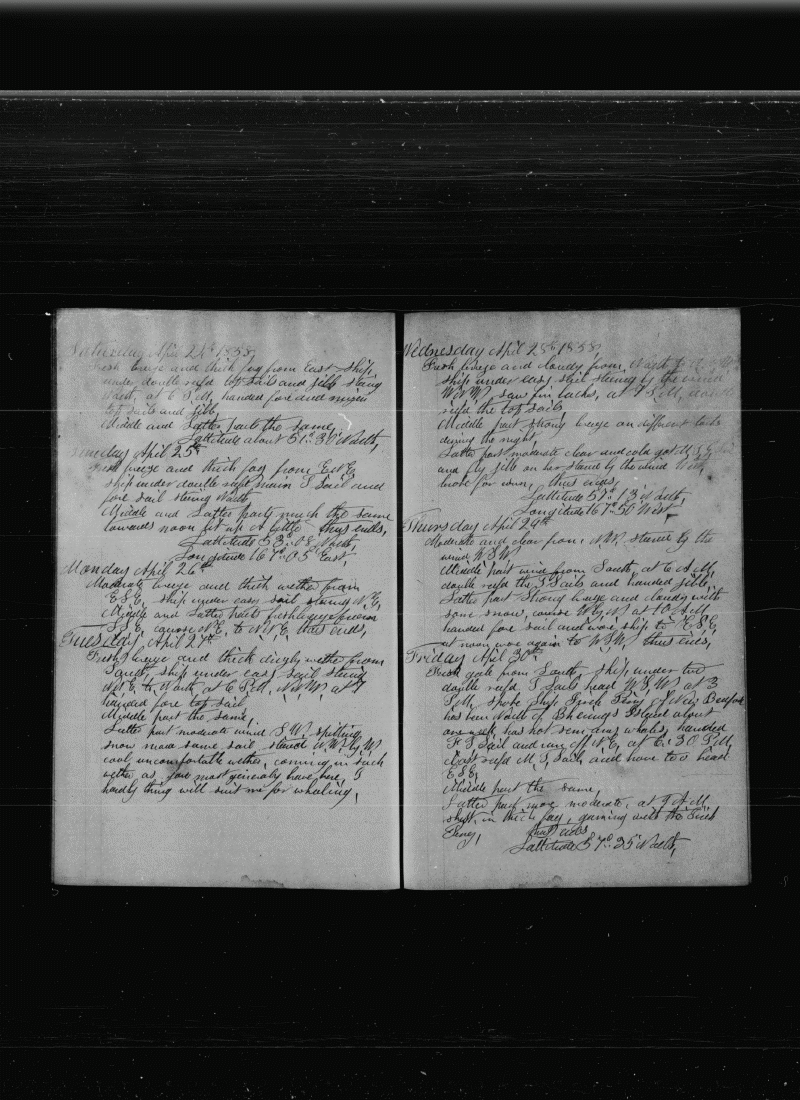 Saturday April 24th 1858,
Fresh breeze and thick fog from East ship
under double reefd top sails and jibb staring
North, at 6 P.M, handed fore and mizen
top sails and jibb,
Middle and Latter parts the same,
Lattitude about 51°. 30' North,
Sunday April 25th
Fresh breeze and thick fog from E.N.E,
ship under double reefd main T Sail and
fore sail stering North
Middle and Latter parts much the same
towards noon let up a little thus ends,
Lattitude 53°. 08' North,
Longitude 167°. 05' East,
Monday April 26th
Moderate breeze and thick wether from
E.S.E, ship under easy sail stering N.E,
Middle and Latter parts fresh breeze from
S.S.E, course N.E, to N.N.E thus ends,
Tuesday, April 27th
Fresh breeze and thick wether from
South, ship under easy sail string
N.N.E, to North, at 6 P.M, N.N.W. at 7
handed fore top sail,
Middle part the same,
Latter part moderate wind S.W. spitting
snow now same sail W.N.W. by W,
cool uncomfortable wether, coming in such
wether as you most generaly have here, I
hardly thing will suit me for whaling,
Wednesday April 28th 1858,
Fresh breeze and cloudy from North
ship under easy sail stering by the wind
W.N.W, saw fin backs, at 7 P.M, double
reefd the top sails
Middle part strong breeze on different tacks
during the night,
Latter part moderate clear and cold got M.T.G. Sail
and fly jibb on her stand by the wind
wore for worn, thus ends,
Lattitude 57°. 13' North,
Longitude 167°. 50' West,
Thursday April 29th
Moderate and clear from N.W. staned by the
wind W.S.W,
Middle part wind from South, at 6 A.M,
double reefd the T Sails and handed jibb,
Latter part Strong breeze and cloudy with
som snow, course W by N at 10 A.M
handed fore sail and wore ship to E.S.E,
at noon wore again to W.S.W, thus ends,
Friday April 30th
Fresh gale from South, ship under two
double reefd T Sails head W.S.W, at 3
P.M, spoke Ship of New Bedford
has ben North of Bhering's Island about
one week, has not seen any whales, handed
F.T. Sail and run off N.E, at 6.30 P.M,
close reefd M.T. Sail, and hove too head
E.S.E,
Middle part the same,
Latter part more moderate, at 9 A.M,
shut in thick fog, gaming with the
thus ends
Lattitude 57°. 25' North,